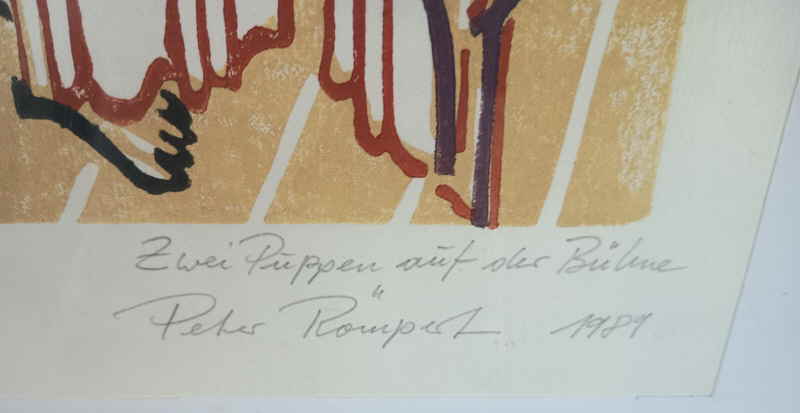 Zwei Puppen auf der Bühne
Peter Römpert 1989